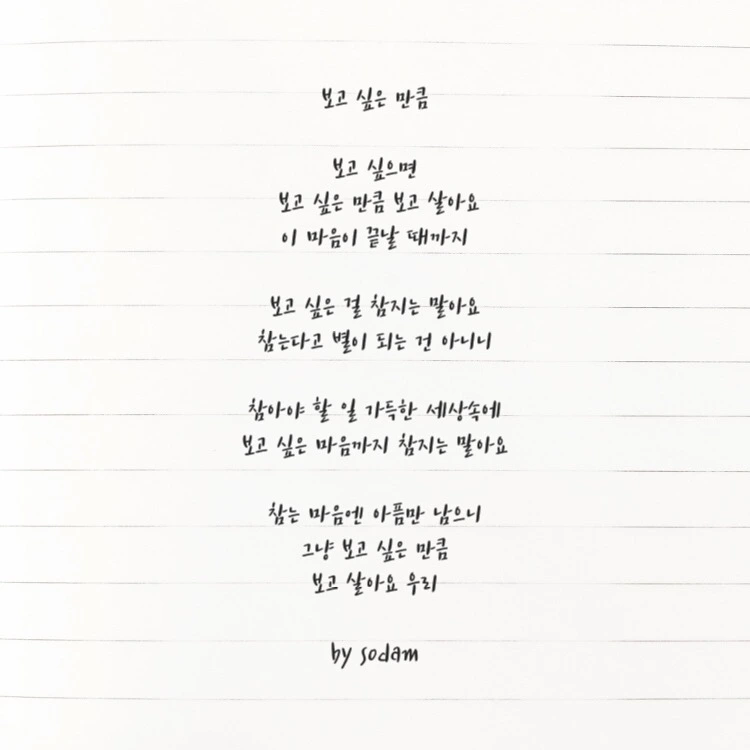 보고 싶은 만큼
보고 싶으면
보고 싶은 만큼 보고 살아요
이 마음이 끝날 때까지
보고 싶은 걸 참지는 말아요
참는다고 별이 되는 건 아니니
참아야 할 일 가득한 세상속에
보고 싶은 마음까지 참지는 말아요
참는 마음엔 아픔만 남으니
그냥 보고 싶은 만큼
보고 살아요 우리
by sodam